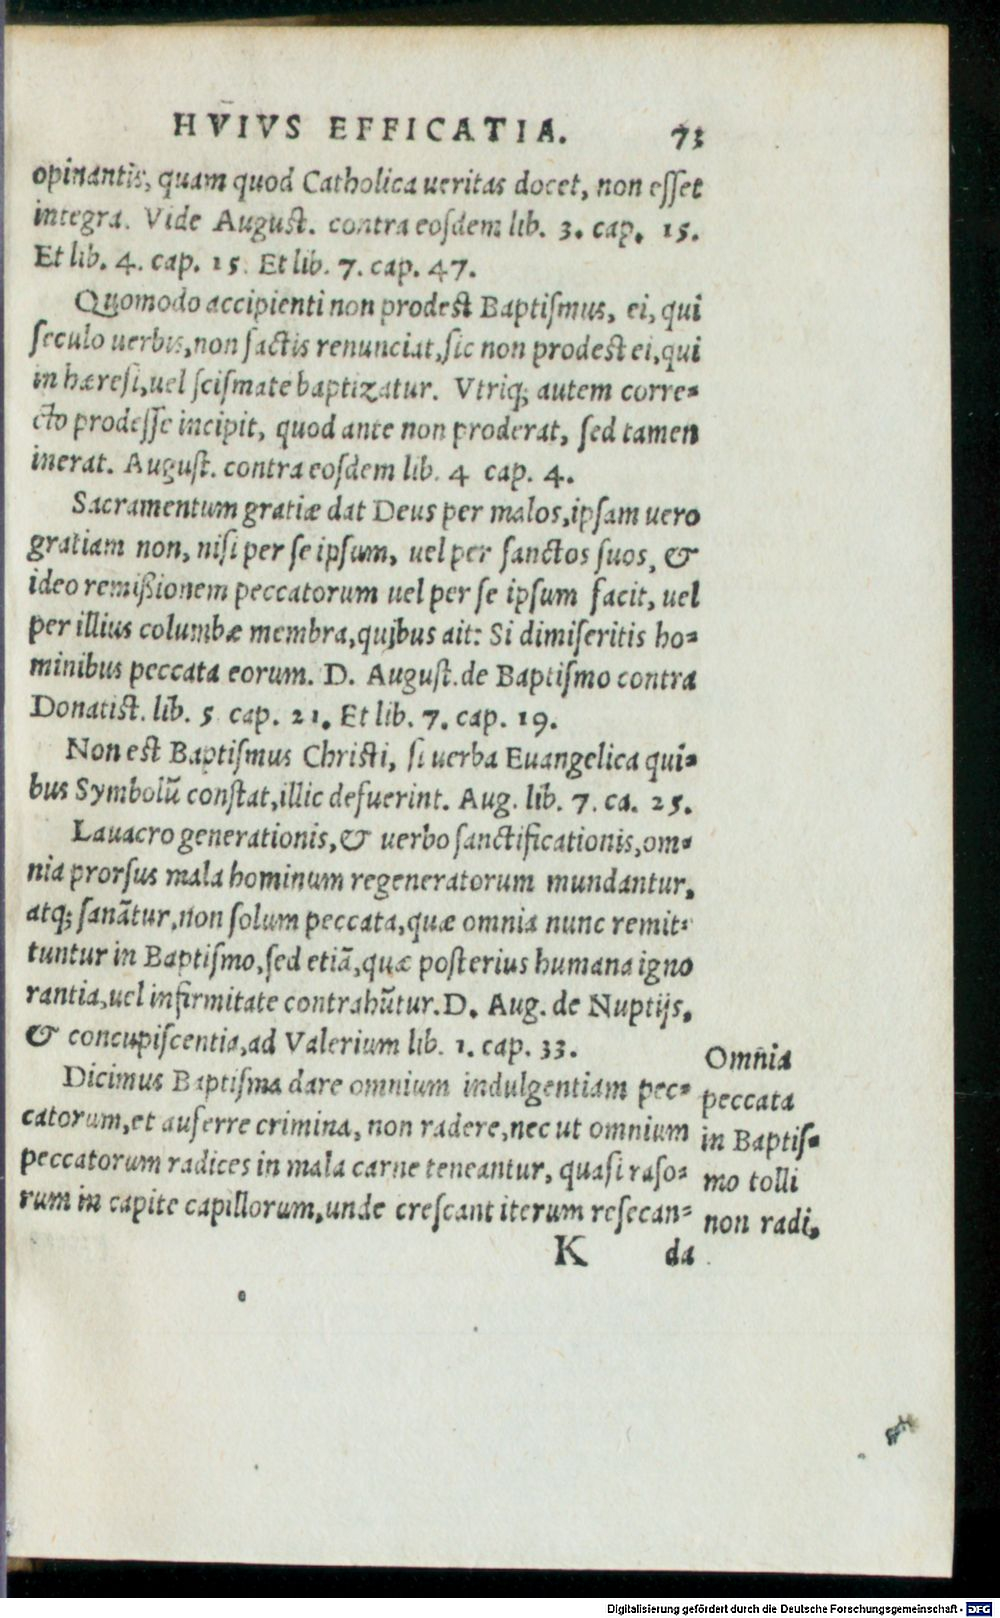 HVIVS EFFICATIA. 73
opinantis, quam quod Catholica ueritas docet, non esset
integra. Vide August. contra eosdem lib. 3. cap. 15.
Et lib. 4. cap. 15. Et lib. 7. cap. 47.
Quomodo accipienti non prodest Baptismus, ei, qui
seculo uerbis, non factis renunciat, sic non prodest ei, qui
in hæresi, uel scismate baptizatur. Vtriq; autem corre-
cto prodesse incipit, quod ante non proderat, sed tamen
inerat. August. contra eosdem lib. 4 cap. 4.
Sacramentum gratiæ dat Deus per malos, ipsam uero
gratiam non, nisi per se ipsum, uel per sanctos suos, &
ideo remißionem peccatorum uel per se ipsum facit, uel
per illius columbæ membra, quibus ait: Si dimiseritis ho-
minibus peccata eorum. D. August. de Baptismo contra
Donatist. lib. 5 cap. 21. Et lib. 7. cap. 19.
Non est Baptismus Christi, si uerba Euangelica qui-
bus Symbolū constat, illic defuerint. Aug. lib. 7. ca. 25.
Lauacro generationis, & uerbo sanctificationis, om-
nia prorsus mala hominum regeneratorum mundantur,
atq; sanātur, non solum peccata, quæ omnia nunc remit-
tuntur in Baptismo, sed etiā, quæ posterius humana igno
rantia, uel infirmitate contrahūtur. D. Aug. de Nuptijs,
& concupiscentia, ad Valerium lib. 1. cap. 33.
Dicimus Baptisma dare omnium indulgentiam pec-
catorum, et auferre crimina, non radere, nec ut omnium
peccatorum radices in mala carne teneantur, quasi raso-
rum in capite capillorum, unde crescant iterum resecan-
K da
Omnia
peccata
in Baptis-
mo tolli
non radi.
Digitalisierung gefördert durch die Deutsche Forschungsgemeinschaft - DFG